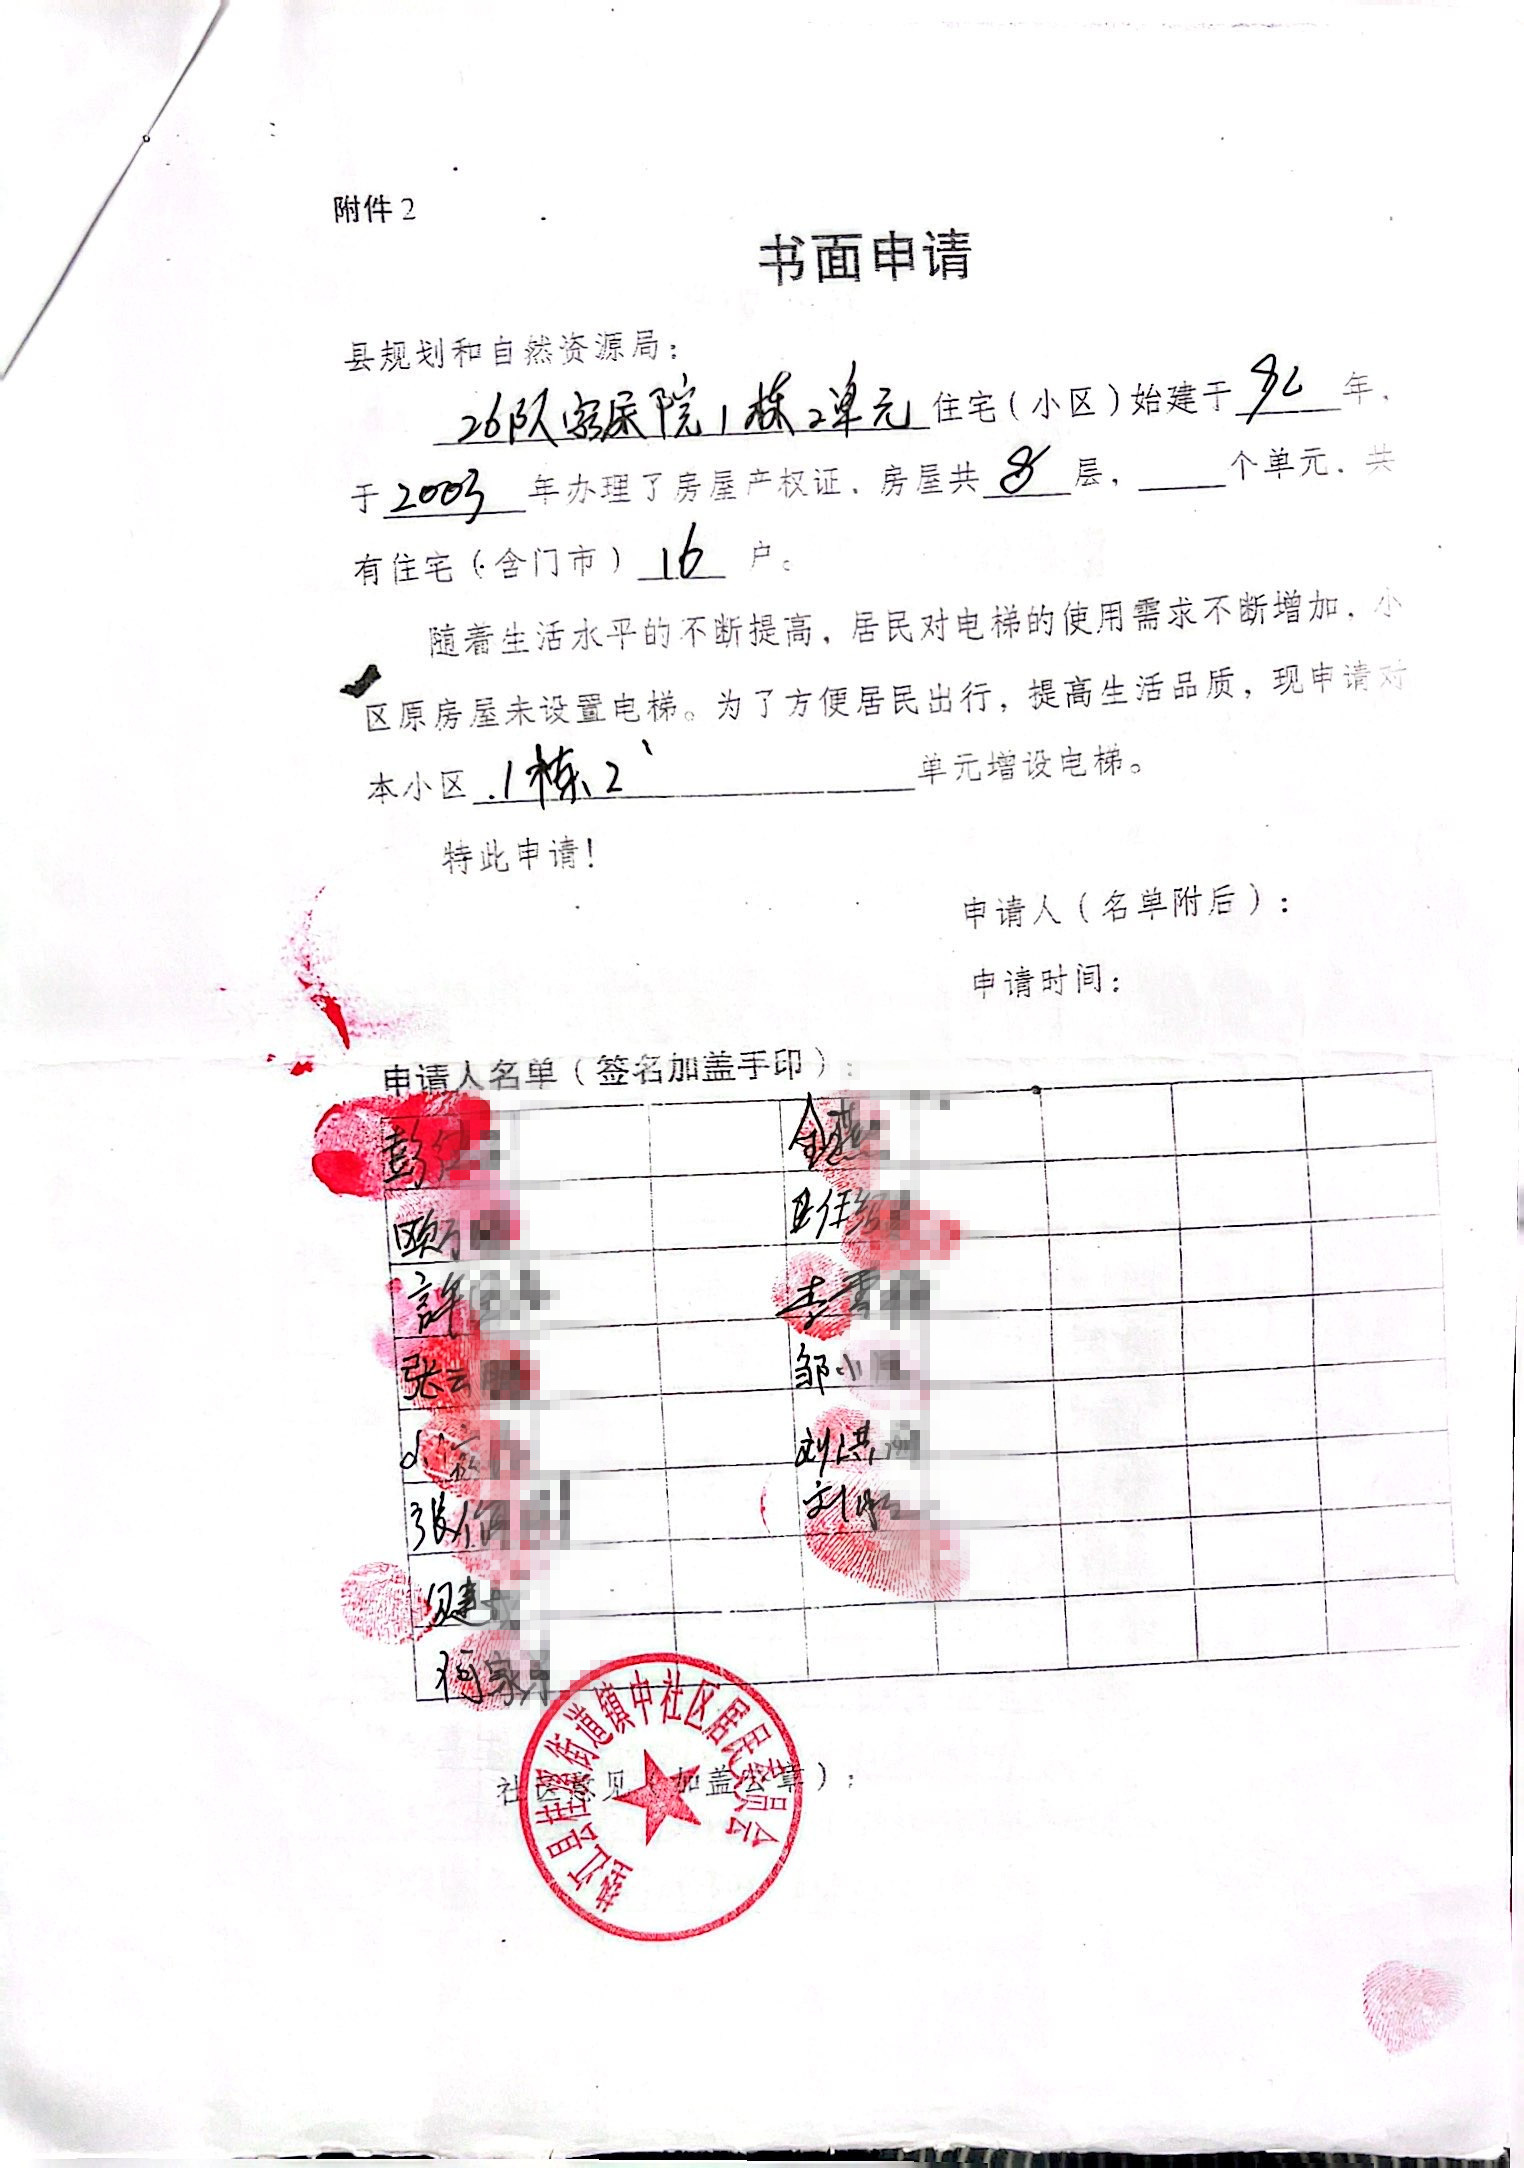 附件2
书面申请
县规划和自然资源局：
26队家属院1栋2单元住宅（小区）始建于 年，
于2003年办理了房屋产权证，房屋共8层，____个单元，共
有住宅（含门市）16户。
随着生活水平的不断提高，居民对电梯的使用需求不断增加，小
区原房屋未设置电梯。为了方便居民出行，提高生活品质，现申请对
本小区1栋2单元增设电梯。
特此申请！
申请人（名单附后）：
申请时间：
申请人名单（签名加盖手印）：
彭
欧
許 李雪
张云 邹小
张 刘洪
刘
建
社区意见（加盖公章）：
垫江县桂溪街道镇中社区居民委员会